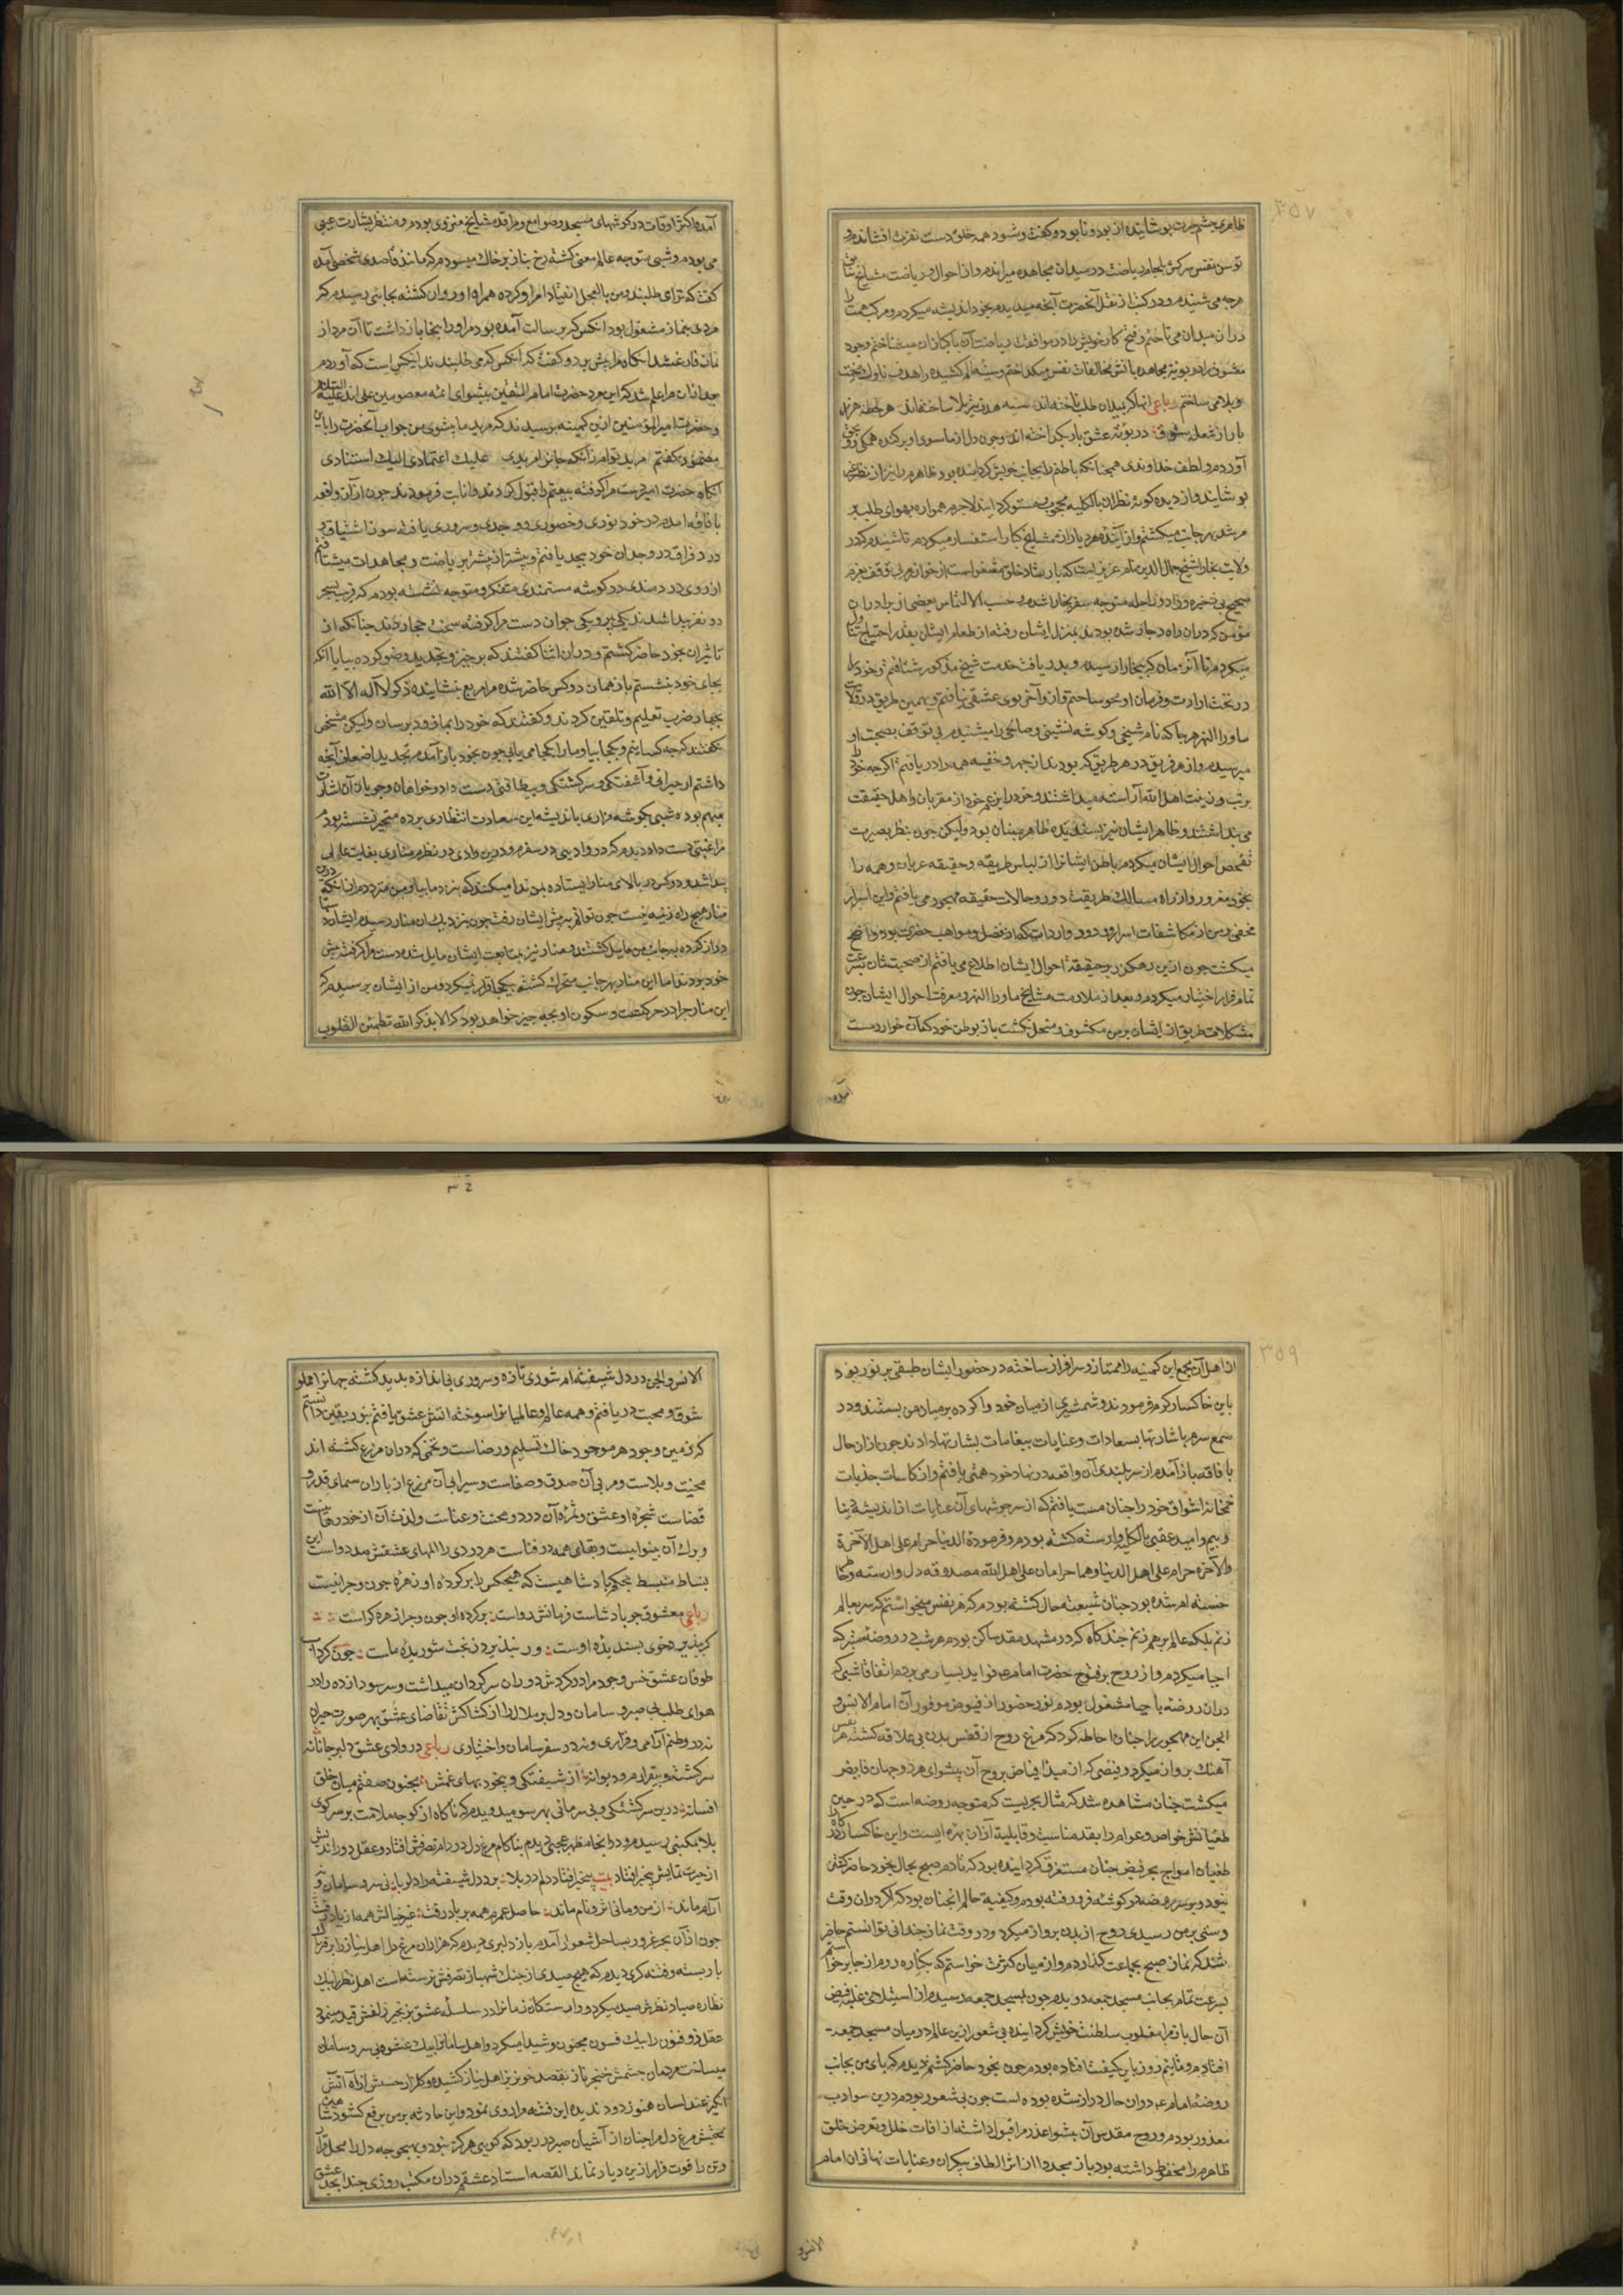 ۳۵۷
ظاهری چشم حیرت پوشانیده از بود و نابود و کفت و شنود همه خلق دست نفرت افشانده و
توسن نفس سرکش بلجام ریاضت در میدان مجاهده میراندم و از احوال و ریاضت مشایخ سابق
هرجه می شنیدم و در کتب از نقل آنحضرت آنجه میدیدم بخود اندیشه میکردم و مرکب همت را
دران میدان می تاختم و فتح کار خویش را در موافقت ریاضت آن پاکبازان میشناختم وجود
در بوتۀ مجاهده با تش مخالفات نفس میکداختم و سینۀ الم کشیده را هدف ناوک محنت
و بلا می ساختم رباعی آنها که بمیدان طلب تاخته اند سینه هدف تیر بلا ساخته اند هر لحظه هزار
بار از شعلۀ شوق در بوتۀ عشق بار بکداخته اند و جون دل از ماسوی او برکنده همکی روی بحق
آوردم و لطف خداوندی همجنانکه باطنم را بجانب خویش کردانیده بود ظاهرم را نیز از نظر غیر
پوشانید و از دیده کوته نظران بالکلیه محجوب و مستور کردانید لاجرم همواره بهوای طلب پیر
مرشد بهر جانب میکشتم و از آینده و هر دیار از مشایخ کبار استفسار میکردم تا شنیدم که در
ولایت بخارا شیخ جمال الدین نام عزیزیست که بارشاد خلق مشغولست از خوارزم بی توقف بعزم
صحیح بی ذخیره و زاد و راحله متوجه سفر بخارا شدم و حسب الالتماس بعضی از برادران
مؤمن که دران راه دجار شده بودند بمنزل ایشان رفته از طعام ایشان بقدر احتیاج تناول
میکردم تا آنزمان که ببخارا رسیدم و بدریافت خدمت شیخ مذکور شتافتم و خود را
در تحت ارادت و فرمان او محو ساختم و ازو آخر بوی عشقی نیافتم و بهمین طریق در ولایت
ماورا النهر هر جا که نام شیخی و کوشه نشینی و صالحی را میشنیدم بی توقف بصحبت او
میرسیدم و از هر فریق در هر طریق که بودند از جهر و خفیه همه را در یافتم اکرجه خود را
بزیب و زینت اهل الله آراسته میداشتند و خود را بزعم خود از مقربان و اهل حقیقت
می پنداشتند و ظاهر ایشان نیز پسندیدۀ ظاهر بینان بود ولیکن جون بنظر بصیرت
تفحص احوال ایشان میکردم باطن ایشانرا از لباس طریقه و حقیقه عریان و همه را
بخود مغرور و از راه مسالک طریقت دور و حالات حقیقه مهجور می یافتم و این اسرار
مخفی و من از مکاشفات اسرار و ورود واردات که از فضل و مواهب حضرت بود واضح
میکشت جون ازین رهکذر بر حقیقۀ احوال ایشان اطلاع می یافتم از صحبتشان بسرعت
تمام فرار اختیار میکردم و بعد از ملازمت مشایخ ماورا النهر و معرفت احوال ایشان جون
مشکلات طریق از ایشان بر من مکشوف و منحل نکشت باز بوطن خود که آن خوارزمست
آمده
آمده اکثر اوقات در کوشهای مسجد و صوامع و مراقد مشایخ منزوی بودم و منتظر بشارت غیبی
می بودم و شبی متوجه عالم معنی کشته رخ نیاز بر خاک میسودم که مانند قاصدی شخصی آمده
کفت که ترا می طلبند و من بالعجل انقیاد امر او کرده همراه او روان کشته بجائی رسیدم که
مردی بنماز مشغول بود آنکس که برسالت آمده بود مرا و را بنجا بازداشت تا آن مرد از
نماز فارغ شد انکاه مرا پیش برد و کفت که آنکس که می طلبیدند اینکس است که آوردم
مرا علم شد که این مرد حضرت امام المتقین پیشوای ائمه معصومین علی اند علیه السلام
و حضرت امیر المؤمنین ازین کمینه پرسیدند که مرید ما بشوی من جواب آنحضرت را باین
مضمون کفتم مرید توام زانکه جانرا مریدی علیک اعتمادی الیک استنادی
انکاه حضرت امیر دست مرا کرفته بیعتم را قبول کردند و انابت فرمودند جون از آن واقعه
بافاقه امدم در خود نوری و حضوری و وجدی و سروری یافته سوز اشتیاق و
درد فراق در وجدان خود بیحد یافتم و بیشتر از پیشتر بریاضت و مجاهدات میشتافتم
از روی دردمندی در کوشه مستمندی متفکر و متوجه نشسته بودم که قریب بسحر
دو نفر پیدا شدند یکی پیر و یکی جوان دست مرا کرفته سخت فشاردند جنانکه از
تاثیر ان بخود حاضر کشتم و دران اثنا کفتند که برخیز و تجدید وضو کرده بیا بانکه
بجای خود بنشستم باز همان دو کس حاضر شده مرا مربع بنشانیده ذکر لا اله الا الله
بجهار ضرب تعلیم و تلقین کردند و کفتند که خود را بما زود برسان ولیکن مشخص
نکفتند که جه کسانیم و بکجا بیا و ما را کجا می یابی جون بخود باز آمدم تجدید اضعاف آنجه
داشتم از حیرانی و آشفتکی و سرکشتکی و بیطاقتی دست داد و خواهان و جویان آن اشارت
مبهم بوده شبی بکوشه مزاری باندیشۀ این سعادت انتظاری برده متحیر نشسته بودم
مرا غیبتی دست داد دیدم که در وادیی در سفرم و درین وادی در نظرم مناری بغایت عالی
پیدا شد و دو کس در بالای منار ایستاده بمن ندا میکنند که بنزد ما بیا و من مترددم از انکه درون
منار هیج راه زینه نیست جون توانم پیش ایشان رفت جون بنزدیک ان منار رسیدم ایشان دستها
دراز کرده بجانب من مایل کشتند و منار نیز بمتابعت ایشان مایل شده دست مرا کرفته پیش
خود بردند اما این منار بهر جانب متحرک کشته بیکجا قرار نمیکرد و من از ایشان پرسیدم که
این منار جرا در حرکتست و سکون او بجه جیز خواهد بود که الا بذکر الله تطمئن القلوب
۳۵۹
از اهل آن جمع این کمینه را ممتاز و سرافراز ساخته در حضور ایشان طبقی پر نور بود
باین خاکسار کرم فرمودند و شمشیری از میان خود وا کرده بر میان من بستند و در
سمع سرم باشارتها بسعادات و عنایات بیغامات بشارتها دادند جون ازان حال
بافاقه باز آمدم از سربلندی آن واقعه در نهاد خود همتی یافتم و از کاسات جذبات
خمخانۀ اشواق خود را جنان مست یافتم که از سر جوشهای آن عنایات از اندیشۀ دنیا
و بیم و امید عقبی بالکل وارسته کشته بودم و فرمودۀ الدنیا حرام علی اهل الآخرة
والآخرة حرام علی اهل الدنیا وهما حرامان علی اهل الله مصدوقه دل وارسته و حال
خسته ام شده بود جنان شیفتۀ حال کشته بودم که هر نفس میخواستم که سر بعالم
زنم بلکه عالم بر هم زنم جند کاه که در مشهد مقدس ساکن بودم هر شب در روضۀ متبرکه
احیا میکردم و از روح پر فتوح حضرت امام ع م فواید بسیار می بردم اتفاقا شبی که
دران روضه باحیا مشغول بودم نور حضور از فیوض موفور آن امام الانس و
الجن این مهجور را جنان احاطه کرد که مرغ روح از قفس بدن بی علاقه کشته هر نفس
آهنک پرواز میکرد و فیضی که از مبدأ فیاض بر روح آن پیشوای هر دو جهان فایض
میکشت جنان مشاهده شد که مثال بحریست که متوجه روضه است که در حین
طغیانش خواص و عوام را بقدر مناسبت و قابلیة از ان بهره ایست و این خاکسار را در کاه
طغیان امواج بحر فیض جنان مستغرق کردانیده بود که تا دم صبح بحال بخود حاضر کشتن
نبود و سر در کوشه فرو رفته بودم و کیفیة حالم انجنان بود که اکر دران وقت
دستی بر من رسیدی روح از بدن پرواز میکرد و در وقت نماز جندانی توانستم حاضر
شد که نماز صبح بجماعت کذاردم و از میان کثرت خواستم که بکناره روم از جا برخواستم
بسرعت تمام بجانب مسجد جمعه دویدم جون بمسجد جمعه رسیدم از استیلا و غلبۀ فیض
آن حال باز مرا مغلوب سلطنت خویش کردانیده بی شعور ازین عالم در میان مسجد جمعه
افتادم و تا نیم روز باین کیفیت افتاده بودم جون بخود حاضر کشتم دیدم که پای من بجانب
روضۀ امام ع م دران حال دراز شده بوده است جون بی شعور بودم درین سو ادب
معذور بودم و روح مقدس آن پیشوا عذرم را قبول داشته از افات خلل و تعرض خلق
ظاهرم را محفوظ داشته بود باز مجددا از اثر الطاف بیکران و عنایات نهانی ان امام
الانس و
الانس والجن در دل شیفته ام شوری تازه و سروری بی اندازه پدید کشته جهانرا مملو
شوق و محبت دریافتم و همه عالم و عالمیانرا سوخته آتش عشق یافتم بنور یقین دانستم
که زمین وجود هر موجود خاک تسلیم و رضاست و تخمی که دران مزرع کشته اند
محنت و بلاست و مربی آن صدق و صفاست و سیرابی آن مزرع از باران سمای قدر و
قضاست شجرۀ او عشق و ثمرۀ آن درد و محنت و عناست و لذت آن از خود رهائیست
و برک آن بینوائیست و بقای همه در فناست هر دردی را المهای عشقش مدد دواست این
بساط منبسط بحکم پادشاهیست که هیجکس را بر کردۀ او زهرۀ جون و جرا نیست
رباعی معشوق جو پادشاست فرمانش رواست بر کرده او جون و جرا زهره کراست
کر بپذیرد خوی پسندیدۀ اوست ور نپذیرد ز بخت شوریدۀ ماست جون کرداب
طوفان عشق خس وجود مرا در کردش دوران سرکردان میداشت و سر سودازده را در
هوای طلب بی صبر و سامان و دل پر ملال را از کشاکش تقاضای عشق بهر صورت حیران
نه در وطنم آرامی و قراری و نه در سفر سامان و اختیاری رباعی در وادی عشق دلبر جانانه
سرکشته و بیقرارم و دیوانه از شیفتکی و بیخودیهای غمش مجنون صفتم میان خلق
افسانه درین سرکشتکی و بی سرمانی بهر سو میدویدم که ناکاه از کوجه ملامت بر سر کوی
بلا بمکتبی رسیدم و در انجا مظهر عجبی دیدم بناکام مرغ دل در دام تصرفش افتاد و عقل دوراندیش
از حیرت تمایش بیخبر افتاد بیت بیخبر افتاد دلم در بلا برد دل شیفته را دلربا نی سر و سامان و نه
آرام ماند از من و مائی اثر و نام ماند حاصل عمرم همه بر باد رفت غیر خیالش همه از یاد رفت
جون از آن بحر غرور بساحل شعور آمدم باز دلبری دیدم که هزاران مرغ دل اهل نیاز را بر فتراک
باز بسته و فتنه کری دیدم که هیج صیدی از جنک شهباز تصرفش نرسته است اهل نظر را بیک
نظاره صیاد نظرش صید میکرد و وارستکان زمانرا در سلسلۀ عشق بزنجیر زلفش قید مینمود
عقل ذو فنون را بیک فسون مجنون و شیدا میکرد و اهل سامانرا بیک عشوه بی سر و سامان
میساخت مردمان جشمش خنجر ناز بقصد خونریز اهل نیاز کشیده و کلزار حسنش از آه آتش
انکیز عندلیبان هنوز دود ندیده این فتنه مرا روی نمود و این حادثه بر من برقع کشود شاهین
بخشش مرغ دل مرا جنان از آشیان صبر در ربود که کویی هرکز نبود و بهیجوجه دل را مجال قرار
و تن را قوت فرار ازین دیار نماند القصه استاد عشقم دران مکتب روزی جند ابجد عشق